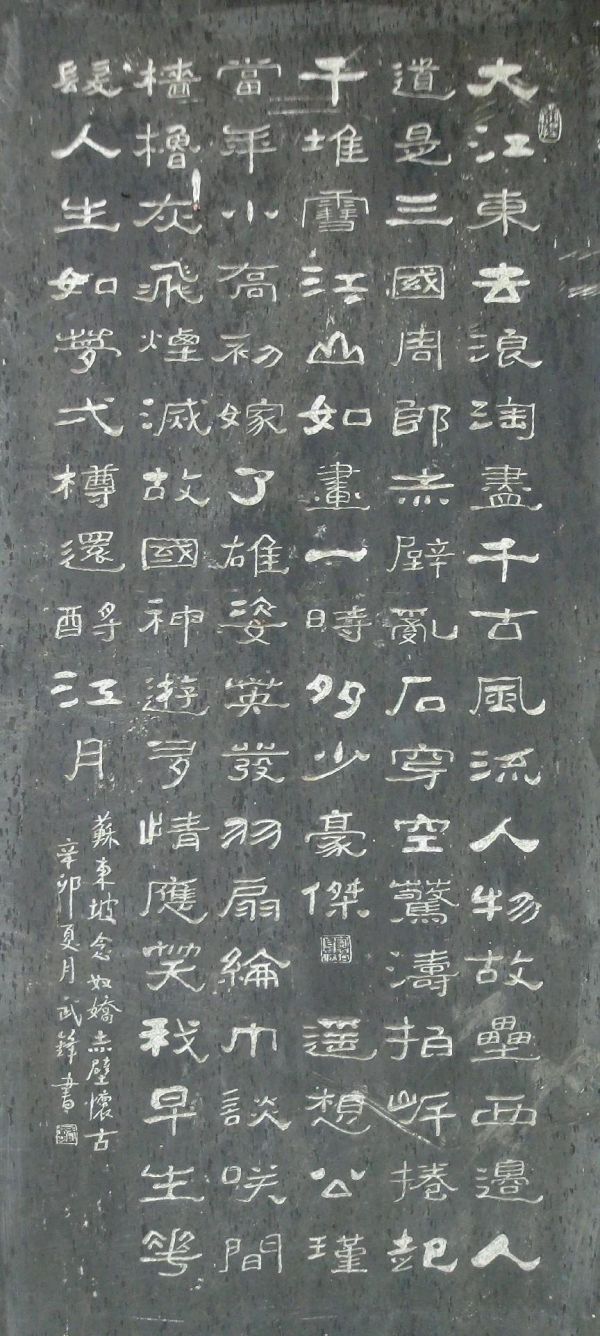 大江東去浪淘盡千古風流人物故壘西邊人
道是三國周郎赤壁亂石穿空驚濤拍岸捲起
千堆雪江山如畫一時多少豪傑 遥想公瑾
當年小喬初嫁了雄姿英發羽扇綸巾談咲間
檣櫓灰飛煙滅故國神遊多情應笑我早生花
髮人生如夢弌樽還酹江月
蘇東坡念奴嬌赤壁懷古
辛卯夏月武鋒書